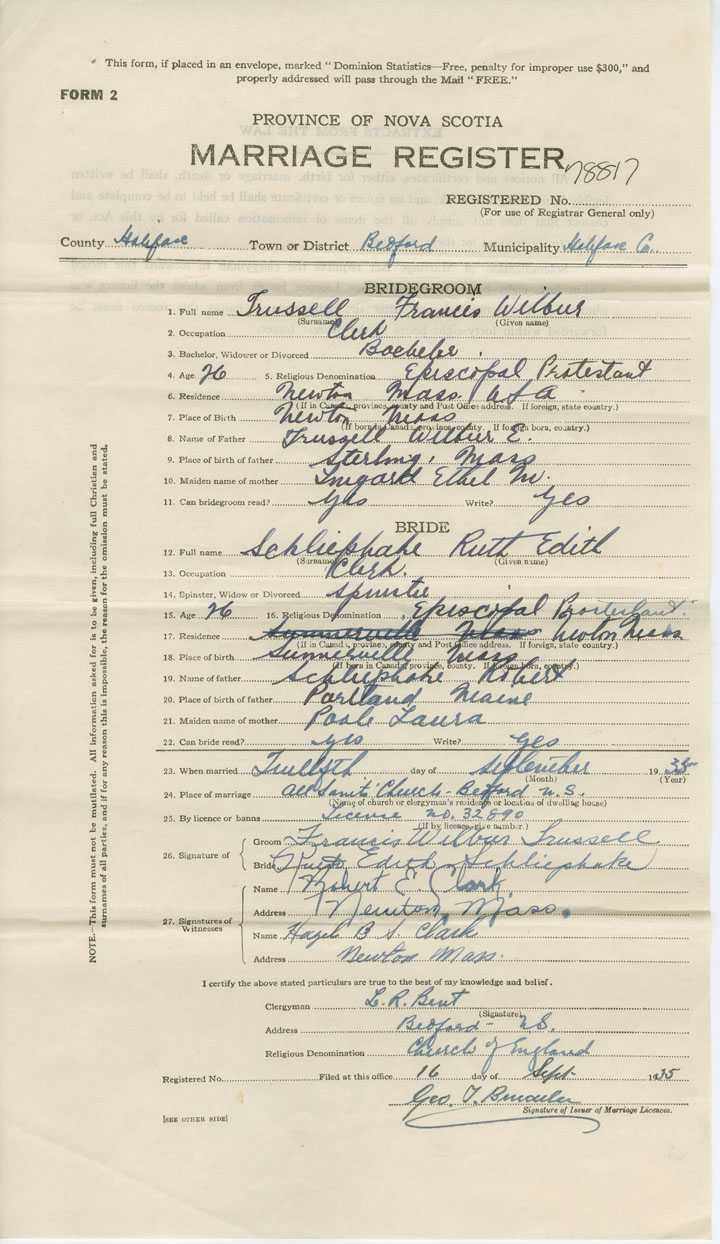 * This form, if placed in an envelope, marked "Dominion Statistics—Free, penalty for improper use $300," and
properly addressed will pass through the Mail "FREE."
FORM 2
PROVINCE OF NOVA SCOTIA
MARRIAGE REGISTER
78817
REGISTERED No.
(For use of Registrar General only)
County Halifax Town or District Bedford Municipality Halifax Co.
BRIDEGROOM
1. Full name Trussell Francis Wilbur
(Surname) (Given name)
2. Occupation Clerk
3. Bachelor, Widower or Divorced Bachelor
4. Age 26 5. Religious Denomination Episcopal Protestant
6. Residence Newton Mass. USA
(If in Canada, province, county and Post Office address. If foreign, state country.)
7. Place of Birth Newton Mass
(If born in Canada, province, county. If foreign born, country.)
8. Name of Father Trussell Wilbur E.
9. Place of birth of father Sterling, Mass
10. Maiden name of mother Ethel M.
11. Can bridegroom read? Yes Write? Yes
BRIDE
12. Full name Schliephake Ruth Edith
(Surname) (Given name)
13. Occupation Clerk.
14. Spinster, Widow or Divorced
15. Age 26 16. Religious Denomination Episcopal Protestant.
17. Residence Newton Mass
(If in Canada, province, county and Post Office address. If foreign, state country.)
18. Place of birth Summerville Mass
(If born in Canada, province, county. If foreign born, country.)
19. Name of father Schliephake Robert
20. Place of birth of father Portland Maine
21. Maiden name of mother Poole Laura
22. Can bride read? Yes Write? Yes
23. When married day of September 1935
(Month) (Year)
24. Place of marriage All Saints Church - Bedford N.S.
(Name of church or clergyman's residence or location of dwelling house)
25. By licence or banns License no. 32890
(If by licence, give number.)
26. Signature of
Groom Francis Wilbur Trussell
Bride Ruth Edith Schliephake
27. Signatures of
Witnesses
Name Robert E. Clark.
Address Newton, Mass.
Name Hazel B S. Clark
Address Newton Mass.
I certify the above stated particulars are true to the best of my knowledge and belief.
Clergyman L. R. Bent
(Signature)
Address Bedford - N.S.
Religious Denomination Church of England
Registered No. Filed at this office 16 day of Sept 1935
Geo. T.
Signature of Issuer of Marriage Licences.
[SEE OTHER SIDE]
NOTE.—This form must not be mutilated. All information asked for is to be given, including full Christian and
surnames of all parties, and if for any reason this is impossible, the reason for the omission must be stated.